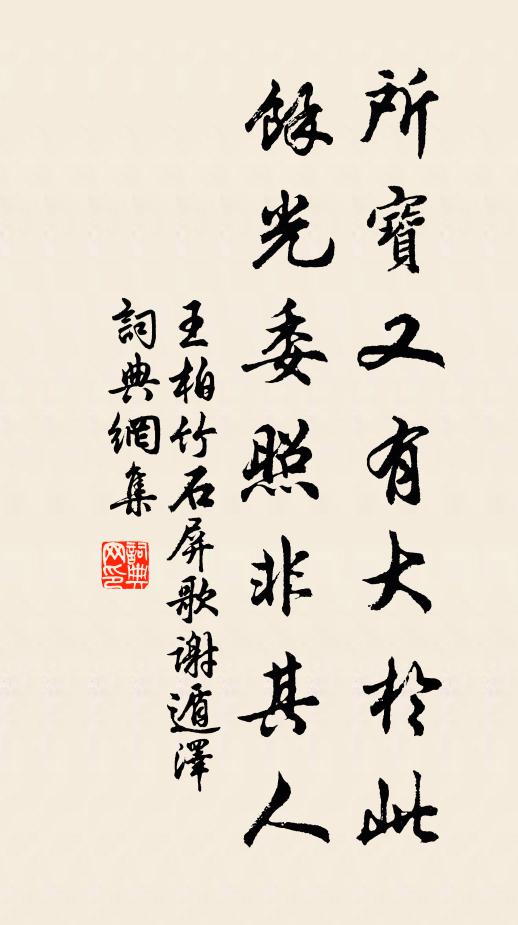 所寶又有大於此
餘光委照非其人
王柏竹石屏歌謝遁澤
詞典網集
詞典网印